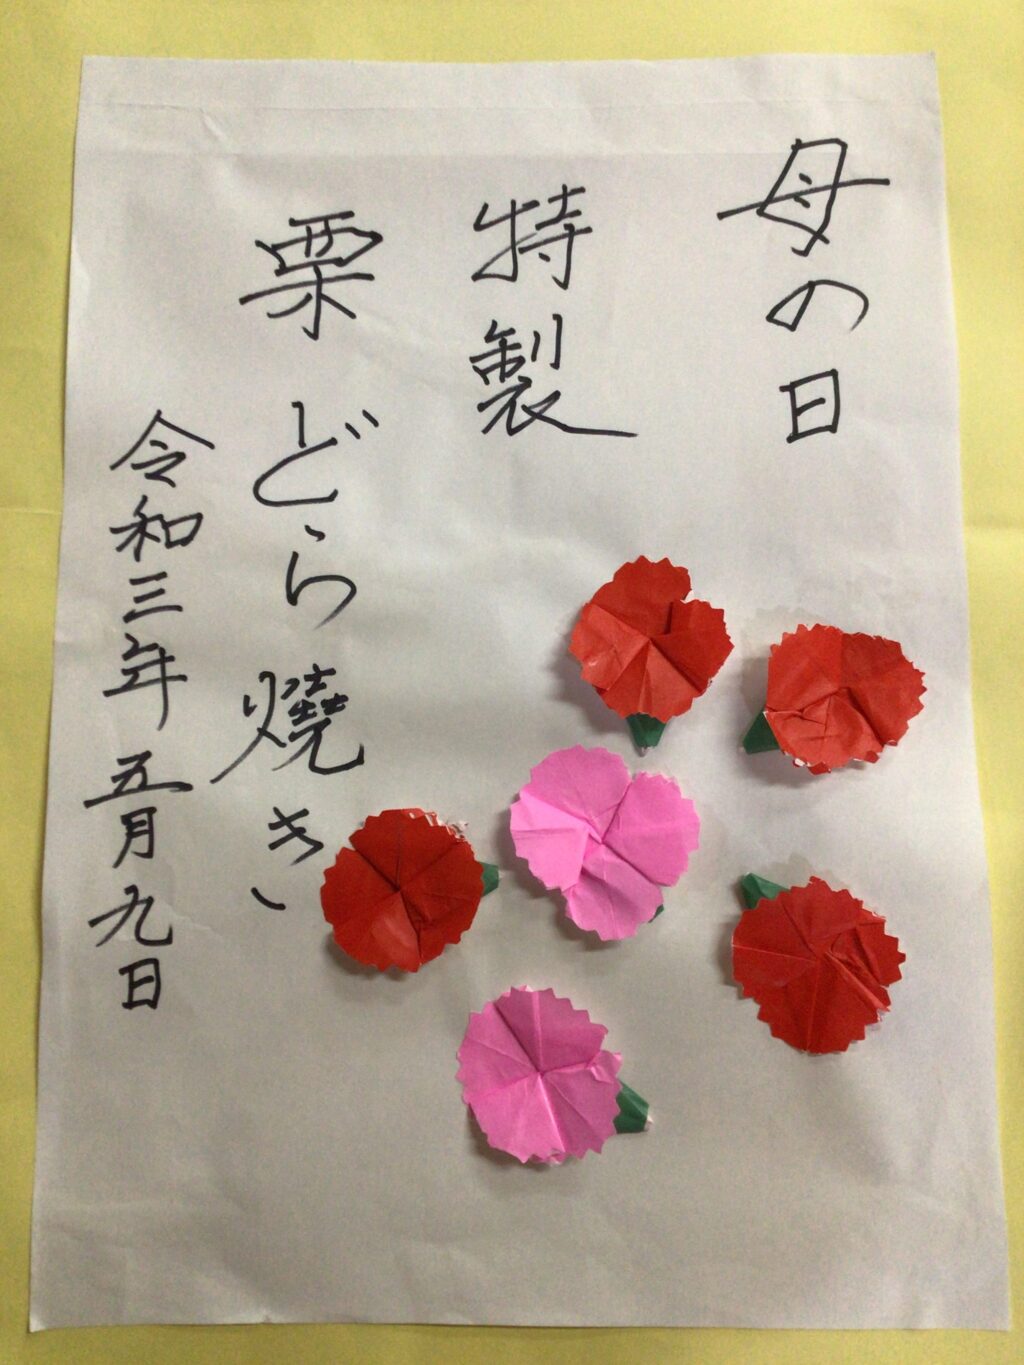 母の日
特製
栗どら燒き
令和三年五月九日